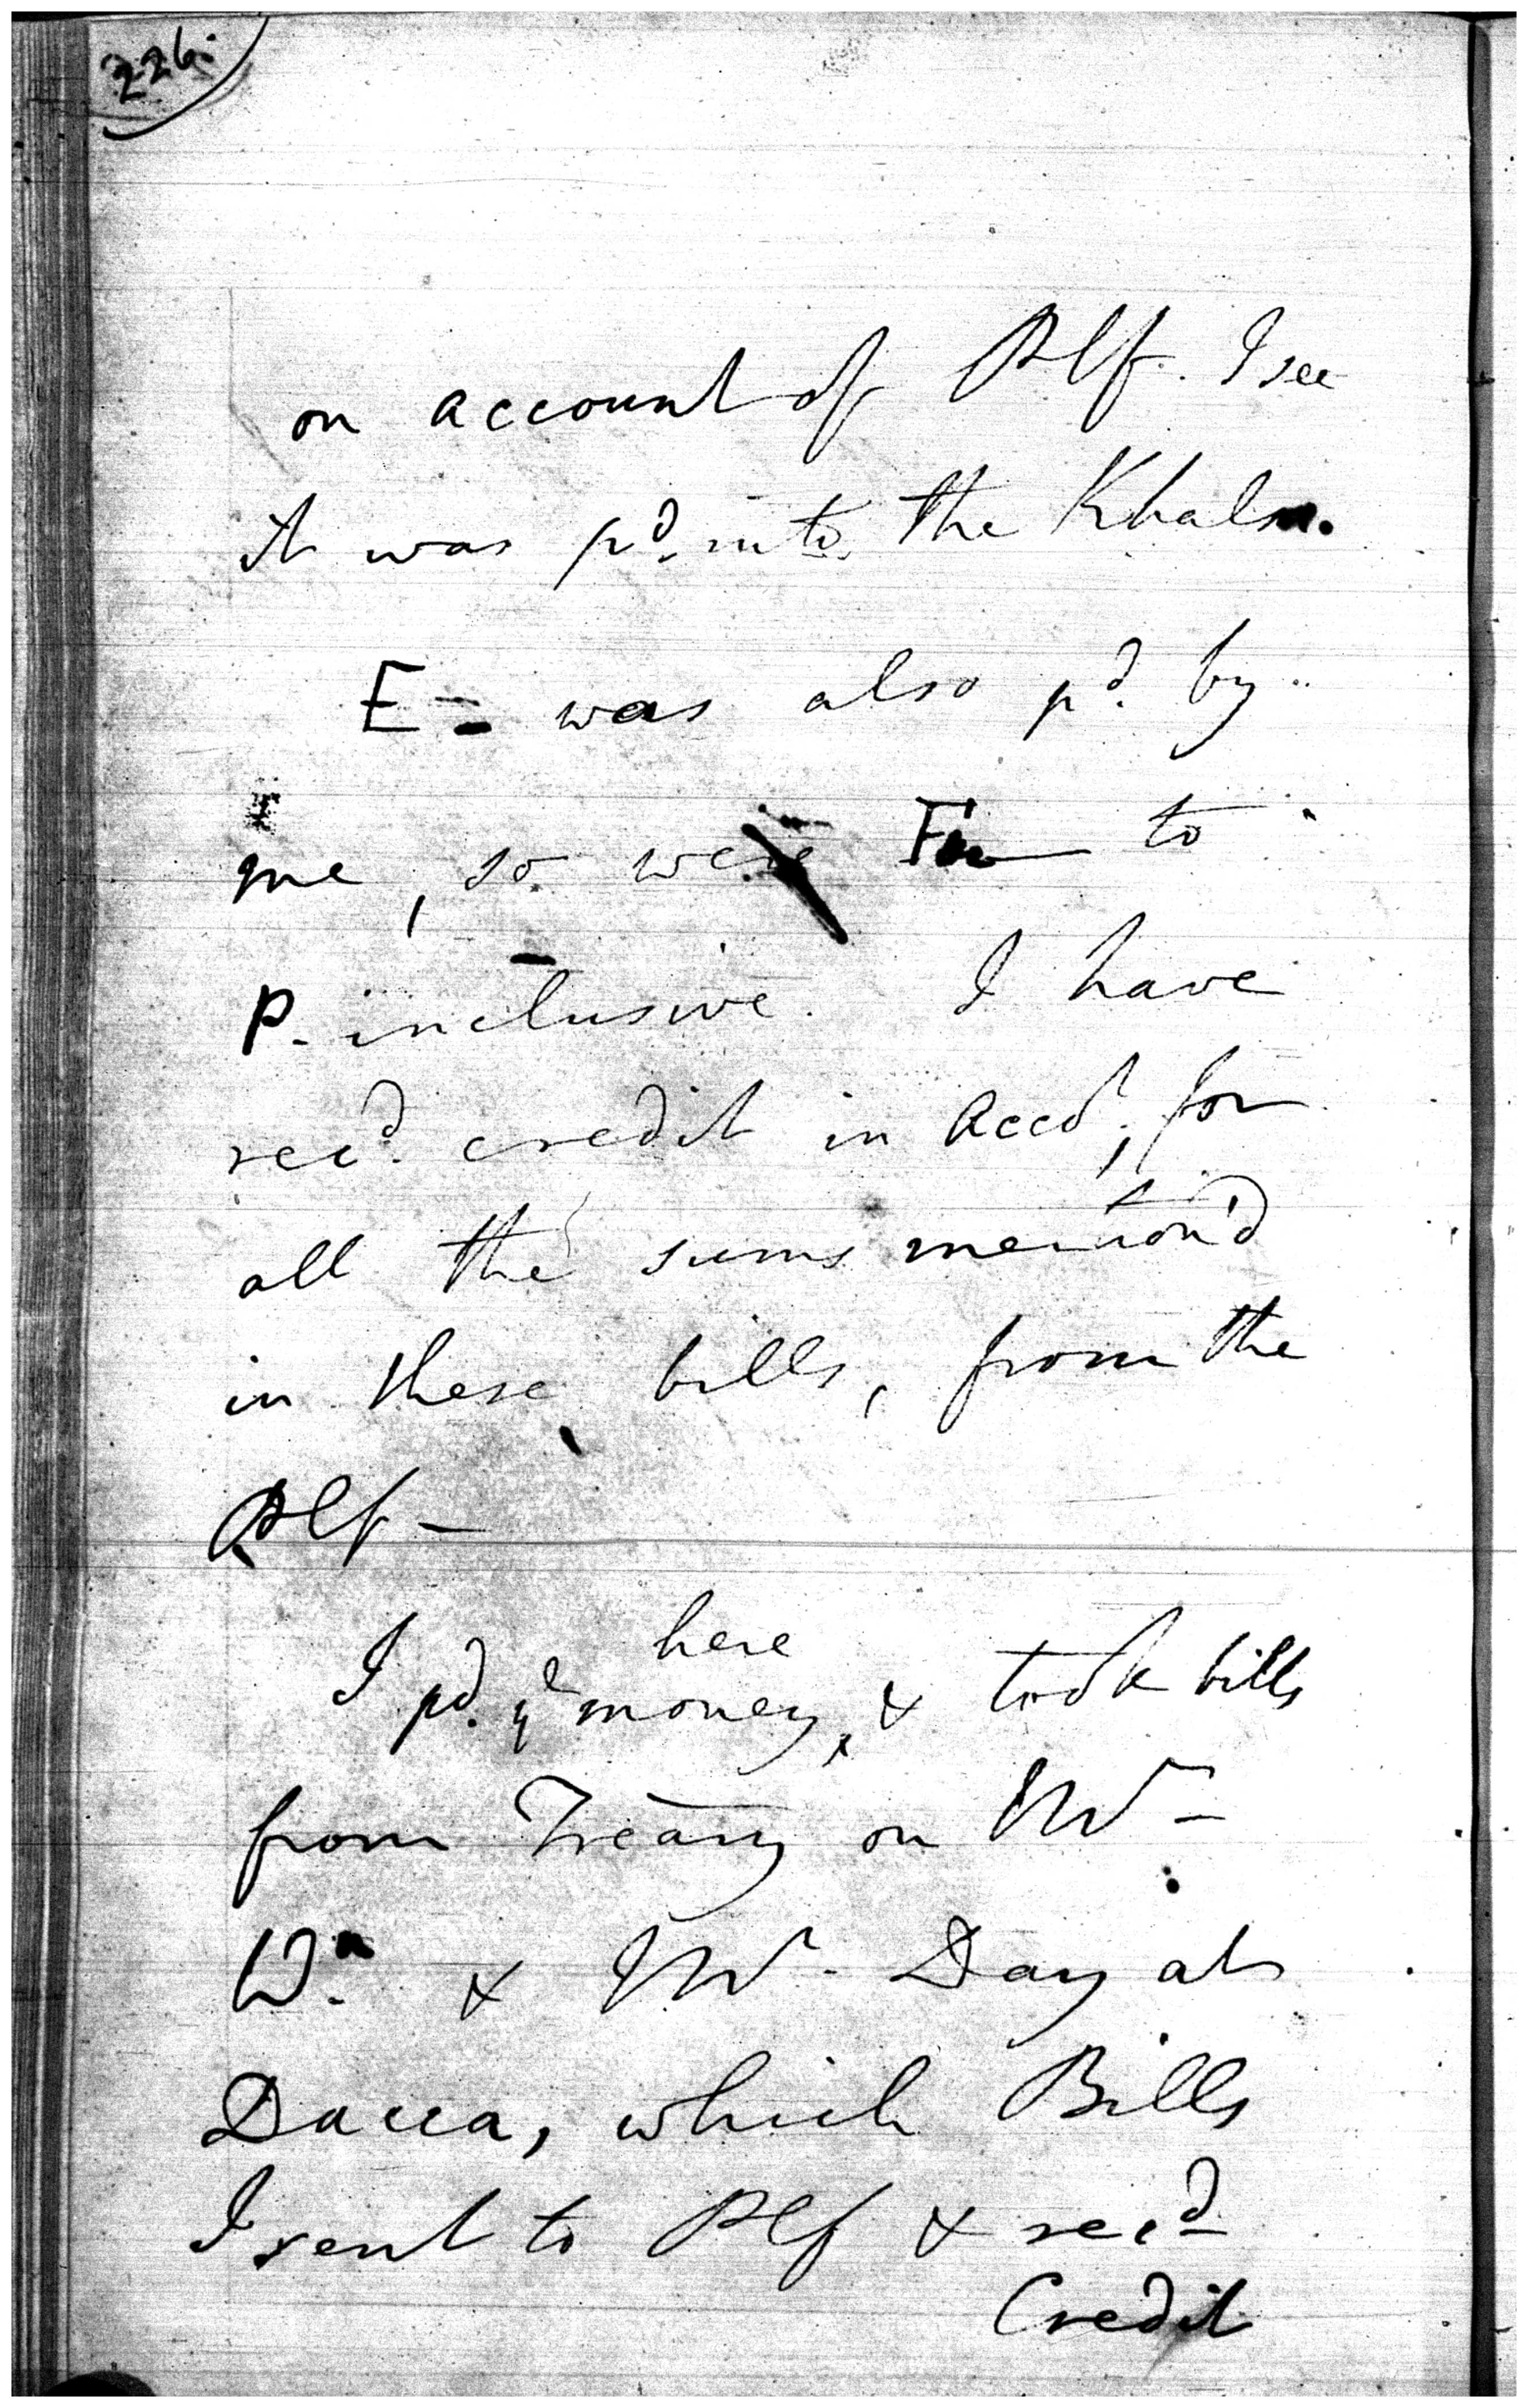 226.
on account of Plf. I see
it was pd. into the Khalsa.
E - was also pd. by
me, so were F to
P. inclusive. I have
recd. credit in Acct, for
all the sums mention'd
in these bills, from the
Plf -
here
I pd. ye money, & took bills
from Treasy on Mr -
Wm. & Mr. Day at
Dacca, which Bills
I sent to Plf & recd
Credit